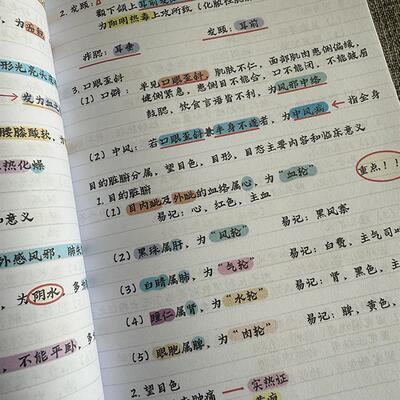 为痄腮
形光亮头
发为血
腰膝酸软
热化燥
意义
外感风邪,肺
为阴水
不能平卧
2. 发颐:
颧下颌上耳前
为阳明热毒上攻所致
痄腮:耳垂
发颐:耳前
3. 口眼歪斜
(1) 口僻:单见口眼歪斜,肌肤不仁,面部肌肉患侧偏缓,
健侧紧急,患侧目不能合,口不能闭,不能皱眉
鼓腮,饮食言语皆不利,为风邪中络
(2) 中风:若口眼歪斜兼半身不遂者,为中风病 ← 指全身
目的脏腑分属,望目色,目形,目态主要内容和临床意义
重点!!
1. 目的脏腑
(1) 目内眦及外眦的血络属心,为“血轮”
易记:心,红色,主血
(2) 黑珠属肝,为“风轮”
易记:黑风寨
(3) 白睛属肺,为“气轮”
易记:白费,主气司
(4) 瞳仁属肾,为“水轮”
易记:肾,黑色,主
(5) 眼胞属脾,为“肉轮”
易记:脾,黄色,
2. 望目色
赤肿痛
实热证
黄病